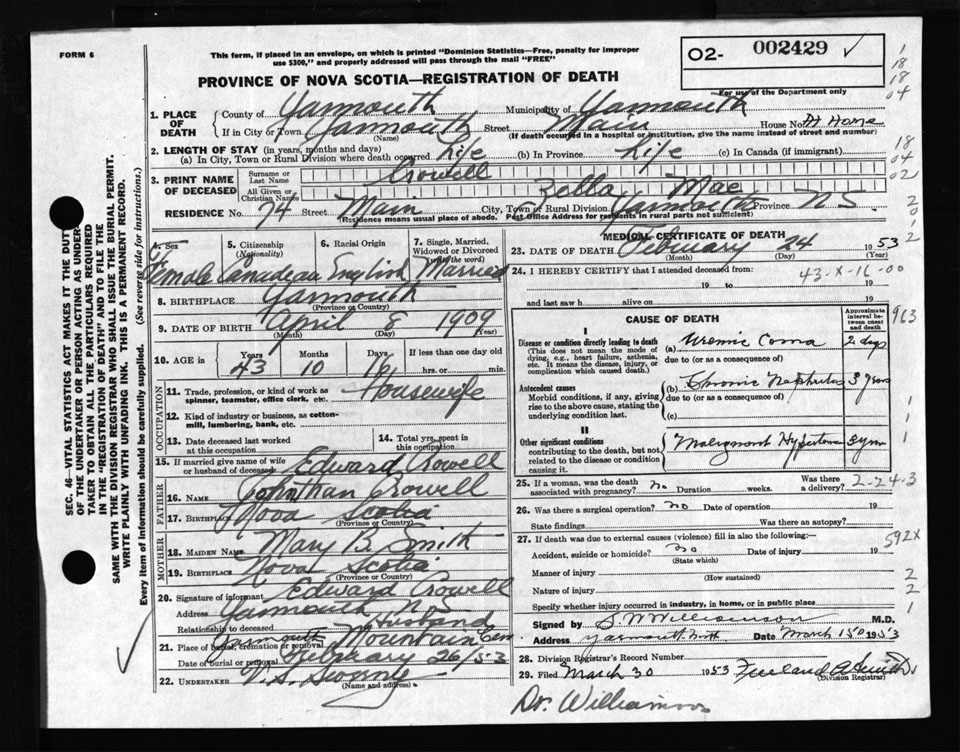 FORM 6
This form, if placed in an envelope, on which is printed "Dominion Statistics—Free, penalty for improper
use $300," and properly addressed will pass through the mail "FREE"
PROVINCE OF NOVA SCOTIA—REGISTRATION OF DEATH
O2- 002429 ✓
For use of the Department only
1. PLACE OF DEATH
County of Yarmouth Municipality of Yarmouth
If in City or Town Yarmouth Street Main House No. At Home
(Name) (If death occurred in a hospital or institution, give the name instead of street and number)
2. LENGTH OF STAY (in years, months and days)
(a) In City, Town or Rural Division where death occurred Life (b) In Province Life (c) In Canada (if immigrant)
3. PRINT NAME OF DECEASED
Surname or Last Name Crowell
All Given or Christian Names Zella Mae
RESIDENCE No. 74 Street Main City, Town or Rural Division Yarmouth Province N S.
(Residence means usual place of abode. Post Office Address for residents in rural parts not sufficient)
4. Sex Female
5. Citizenship (Nationality) Canadean
6. Racial Origin English
7. Single, Married, Widowed or Divorced (write the word) Married
8. BIRTHPLACE Yarmouth
(Province or Country)
9. DATE OF BIRTH April 8 1909
(Month) (Day) (Year)
10. AGE in Years 43 Months 10 Days 16 If less than one day old hrs. or min.
OCCUPATION
11. Trade, profession, or kind of work as spinner, teamster, office clerk, etc. Housewife
12. Kind of industry or business, as cotton-mill, lumbering, bank, etc.
13. Date deceased last worked at this occupation
14. Total yrs. spent in this occupation
15. If married give name of wife or husband of deceased Edward Crowell
FATHER
16. NAME Johnthan Crowell
17. BIRTHPLACE Nova Scotia
(Province or Country)
MOTHER
18. MAIDEN NAME Mary B. Smith
19. BIRTHPLACE Nova Scotia
(Province or Country)
20. Signature of informant Edward Crowell
Address Yarmouth N S
Relationship to deceased Husband
21. Place of burial, cremation or removal Yarmouth Mountain Cem
Date of burial or removal February 26/53
22. UNDERTAKER V. S.
(Name and address)
MEDICAL CERTIFICATE OF DEATH
23. DATE OF DEATH February 24 1953
(Month) (Day) (Year)
24. I HEREBY CERTIFY that I attended deceased from:
43-X-16-00
19 to 19
and last saw h alive on 19
CAUSE OF DEATH
Approximate interval between onset and death
I
Disease or condition directly leading to death
(This does not mean the mode of dying, e.g., heart failure, asthenia, etc. It means the disease, injury, or complication which caused death.)
(a) Uremic Coma 2 days
due to (or as a consequence of)
Antecedent causes
Morbid conditions, if any, giving rise to the above cause, stating the underlying condition last.
(b) Chronic Nephritis 3 years
due to (or as a consequence of)
(c)
II
Other significant conditions
contributing to the death, but not related to the disease or condition causing it.
Malignant Hypertension 3 yrs
25. If a woman, was the death associated with pregnancy? No Duration weeks. Was there a delivery? 2-24-3
26. Was there a surgical operation? no Date of operation 19
State findings Was there an autopsy?
27. If death was due to external causes (violence) fill in also the following:—
Accident, suicide or homicide? no Date of injury 19
(State which)
Manner of injury
(How sustained)
Nature of injury
Specify whether injury occurred in industry, in home, or in public place
Signed by S. W. Williamson M.D.
Address Yarmouth North Date March 1953
28. Division Registrar's Record Number
29. Filed March 30 1953 Smith
(Division Registrar)
Dr. Williamson
SEC. 46—VITAL STATISTICS ACT MAKES IT THE DUTY
OF THE UNDERTAKER OR PERSON ACTING AS UNDER-
TAKER TO OBTAIN ALL THE PARTICULARS REQUIRED
IN THE "REGISTRATION OF DEATH" AND TO FILE THE
SAME WITH THE DIVISION REGISTRAR WHO SHALL ISSUE THE BURIAL PERMIT.
WRITE PLAINLY WITH UNFADING INK. THIS IS A PERMANENT RECORD.
Every item of information should be carefully supplied. (See reverse side for instructions.)
1
18
18
04
18
04
02
2
0
1
2
963
1
1
1
592X
2
2
1